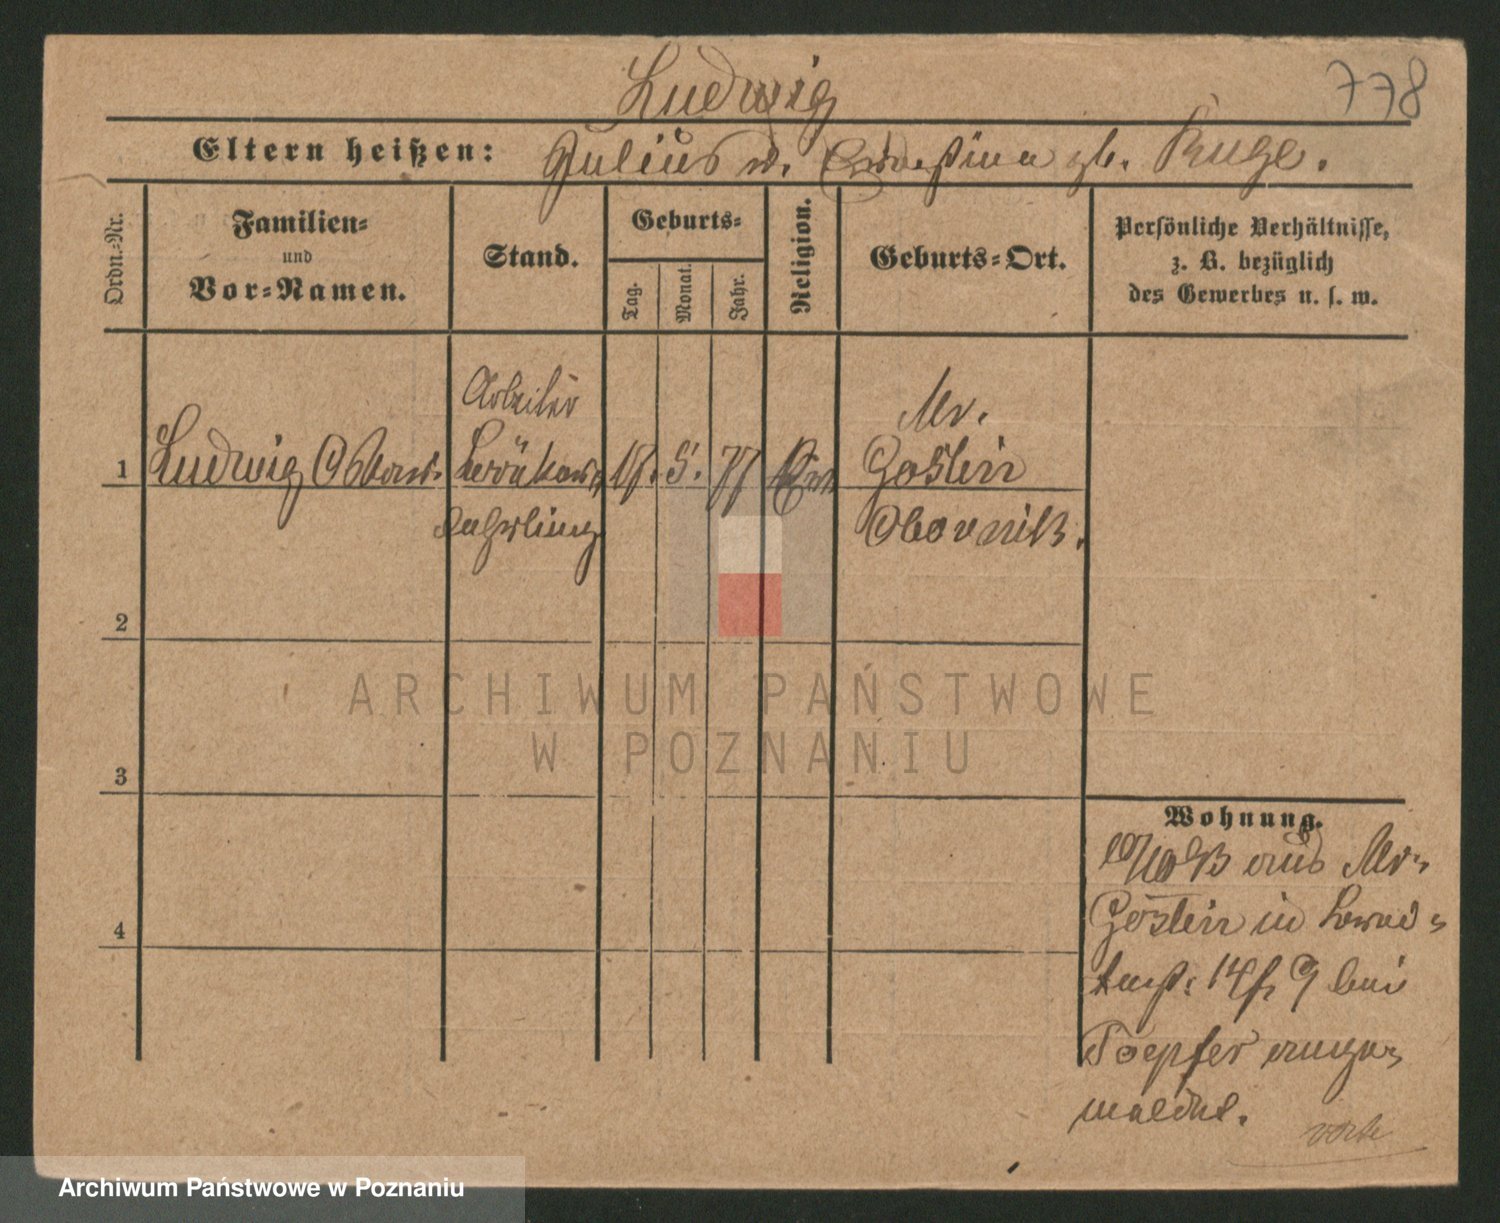 Ludwig
778
Eltern heißen: Julius u. Ernestine gb. Kuge.
Ordn.-Nr.
Familien-
und
Vor-Namen.
Stand.
Geburts-
Tag.
Monat.
Jahr.
Religion.
Geburts-Ort.
Persönliche Verhältnisse,
z. B. bezüglich
des Gewerbes u. s. w.
Arbeiter
Mr.
1 Ludwig Oskar. 17. 5. 77 Ev. Goslin
Obornik.
2
3
4
Wohnung.
93 aus Mr.
Goslin in
14 9 bei
Toepfer ange-
meldet.
ARCHIWUM PAŃSTWOWE
W POZNANIU
Archiwum Państwowe w Poznaniu